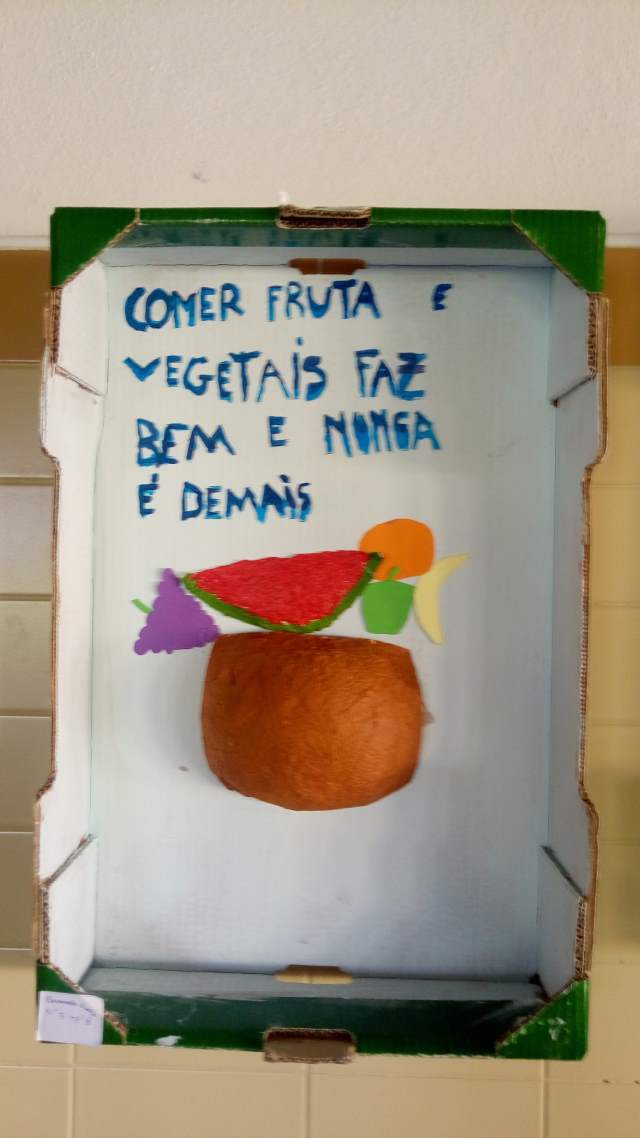 COMER FRUTA E
VEGETAIS FAZ
BEM E NUNCA
É DEMAIS
Nº 5